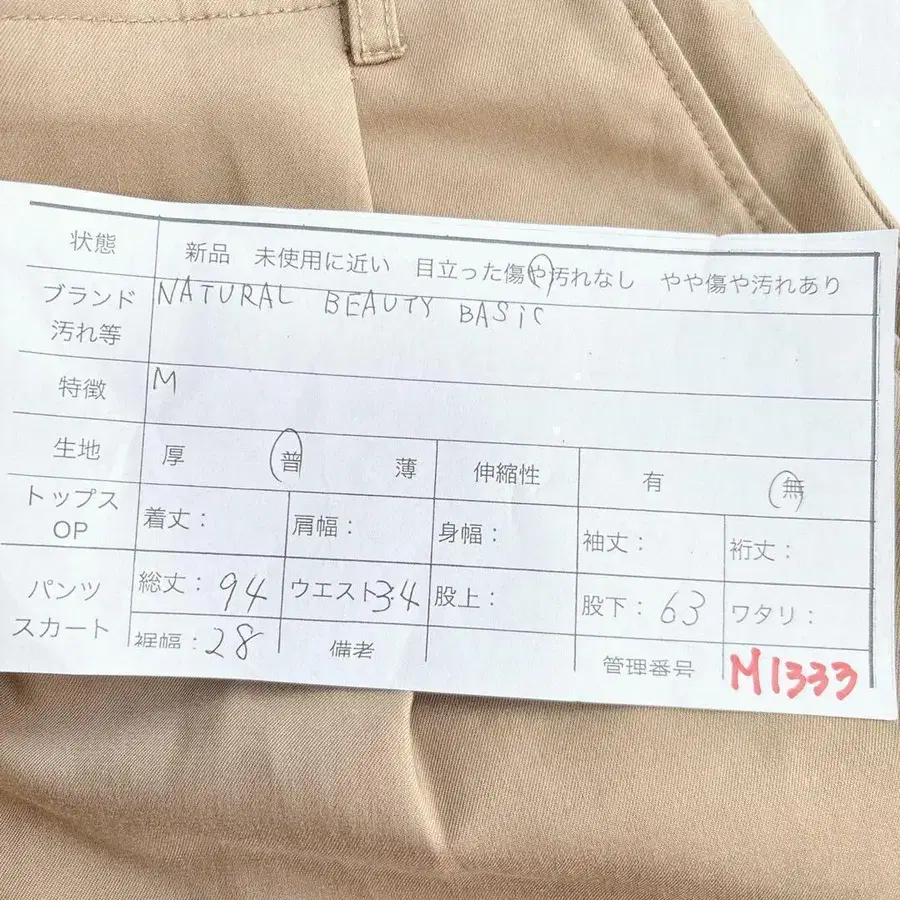 状態 新品 未使用に近い 目立った傷や汚れなし やや傷や汚れあり
ブランド NATURAL BEAUTY BASIC
汚れ等
特徴 M
生地 厚 普 薄 伸縮性 有 無
トップス
OP 着丈: 肩幅: 身幅: 袖丈: 裄丈:
パンツ 総丈: 94 ウエスト34 股上: 股下: 63 ワタリ:
スカート 裾幅: 28 備考 管理番号 M1333